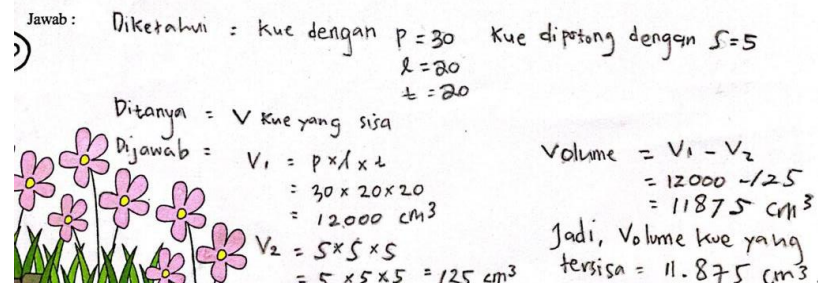 Jawab :
Diketahui : Kue dengan p = 30 Kue dipotong dengan S=5
l = 20
t = 20
Ditanya = V Kue yang sisa
Dijawab :
V₁ = p x l x t
: 30 x 20 x 20
= 12.000 cm³
V₂ = 5 x 5 x 5
= 5 x 5 x 5 = 125 cm³
Volume = V₁ - V₂
= 12000 - 125
= 11875 cm³
Jadi, Volume kue yang
tersisa = 11.875 cm³.